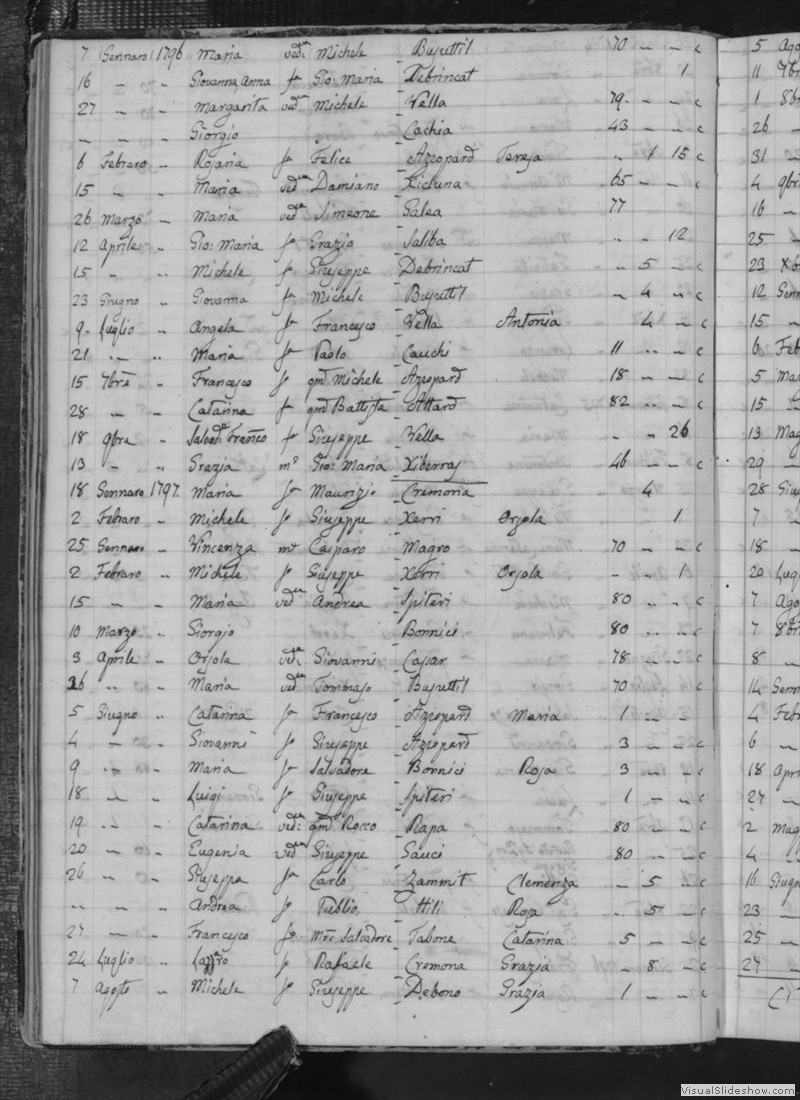 7 Gennaro 1796 Maria ved: Michele Busuttil 70 – – c
16 – – Giovanna, Anna fa Gio: Maria Debrincat 1
27 – – Margarita veda Michele Vella 79 – – c
– – – Giorgio Cachia 43 – – c
6 Febraro – Rosaria fa Felice Azzopard Teresa .. 1 15 c
15 – – Maria veda Damiano Xicluna 65 – – c
26 Marzo – Maria veda Simeone Galea 77
12 Aprile – Gio: Maria fo Grazio Saliba .. .. 12
15 – .. Michele fo Giuseppe Debrincat .. 5 – c
23 Giugno – Giovanna fa Michele Busuttil – 4 – c
9 Luglio .. Angela fa Francesco Vella Antonia 4 – c
21 .. – .. Maria fa Paolo Cauchi 11 .. – c
15 7bre – Francesco fo qm Michele Azzopard 18 – – c
28 – – Catarina f qm Battista Attard 82 .. –
18 9bre – Salvad: Franco fo Giuseppe Vella – – 26
13 – – Grazia ms Gio: Maria Xiberras 46 – – c
18 Gennaro 1797. Maria fa Maurizio Cremona 4
2 Febraro .. Michele fo Giuseppe Xerri Orsola 1
25 Gennaro – Vincenza ms Casparo Magro 70 – – c
2 Febraro .. Michele fo Giuseppe Xerri Orsola – .. 1
15 – – Maria veda Andrea Spiteri 80 .. .. c
10 Marzo .. Giorgio Bonnici 80 – – c
3 Aprile – Orsola ved: Giovanni Casar 78 – – c
16 .. – Maria veda Tommaso Busuttil 70 – – c
5 Giugno .. Catarina fa Francesco Azzopard Maria 1 – –
4 – – Giovanni fo Giuseppe Azzopard 3 – – c
9 .. .. Maria fa Salvadore Bonnici Rosa 3 – – c
18 .. – Luigi fo Giuseppe Spiteri 1 – – c
19 .. – Catarina ved: qm Rocco Rapa 80 – – c
20 – – Eugenia veda Giuseppe Sauci 80 .. – c
26 – – Giuseppa fa Carlo Zammit Clemenza – 5 – c
– – – Andrea fo Publio Hili Rosa .. 5 – c
27 – – Francesco fo Mro Salvadore Tabone Catarina 5 – – c
24 Luglio .. Lazzro fo Rafaele Cremona Grazia – 8 – c
7 Agosto .. Michele fo Giuseppe Debono Grazia 1 – – c
5 Ago
11 7br
1 8br
26 –
31 –
4 9br
16 –
25 –
23 Xb
12 Genn
15 –
6 Feb
5 Mar
15 –
13 Mag
29 –
28 Giu
7 –
18 –
20 Lug
7 Ago
7 8br
8 –
14 Genn
4 Febr
6 –
18 Apri
27 –
2 Mag
4 –
16 Giugn
23 –
25 –
27 –
VisualSlideshow.com